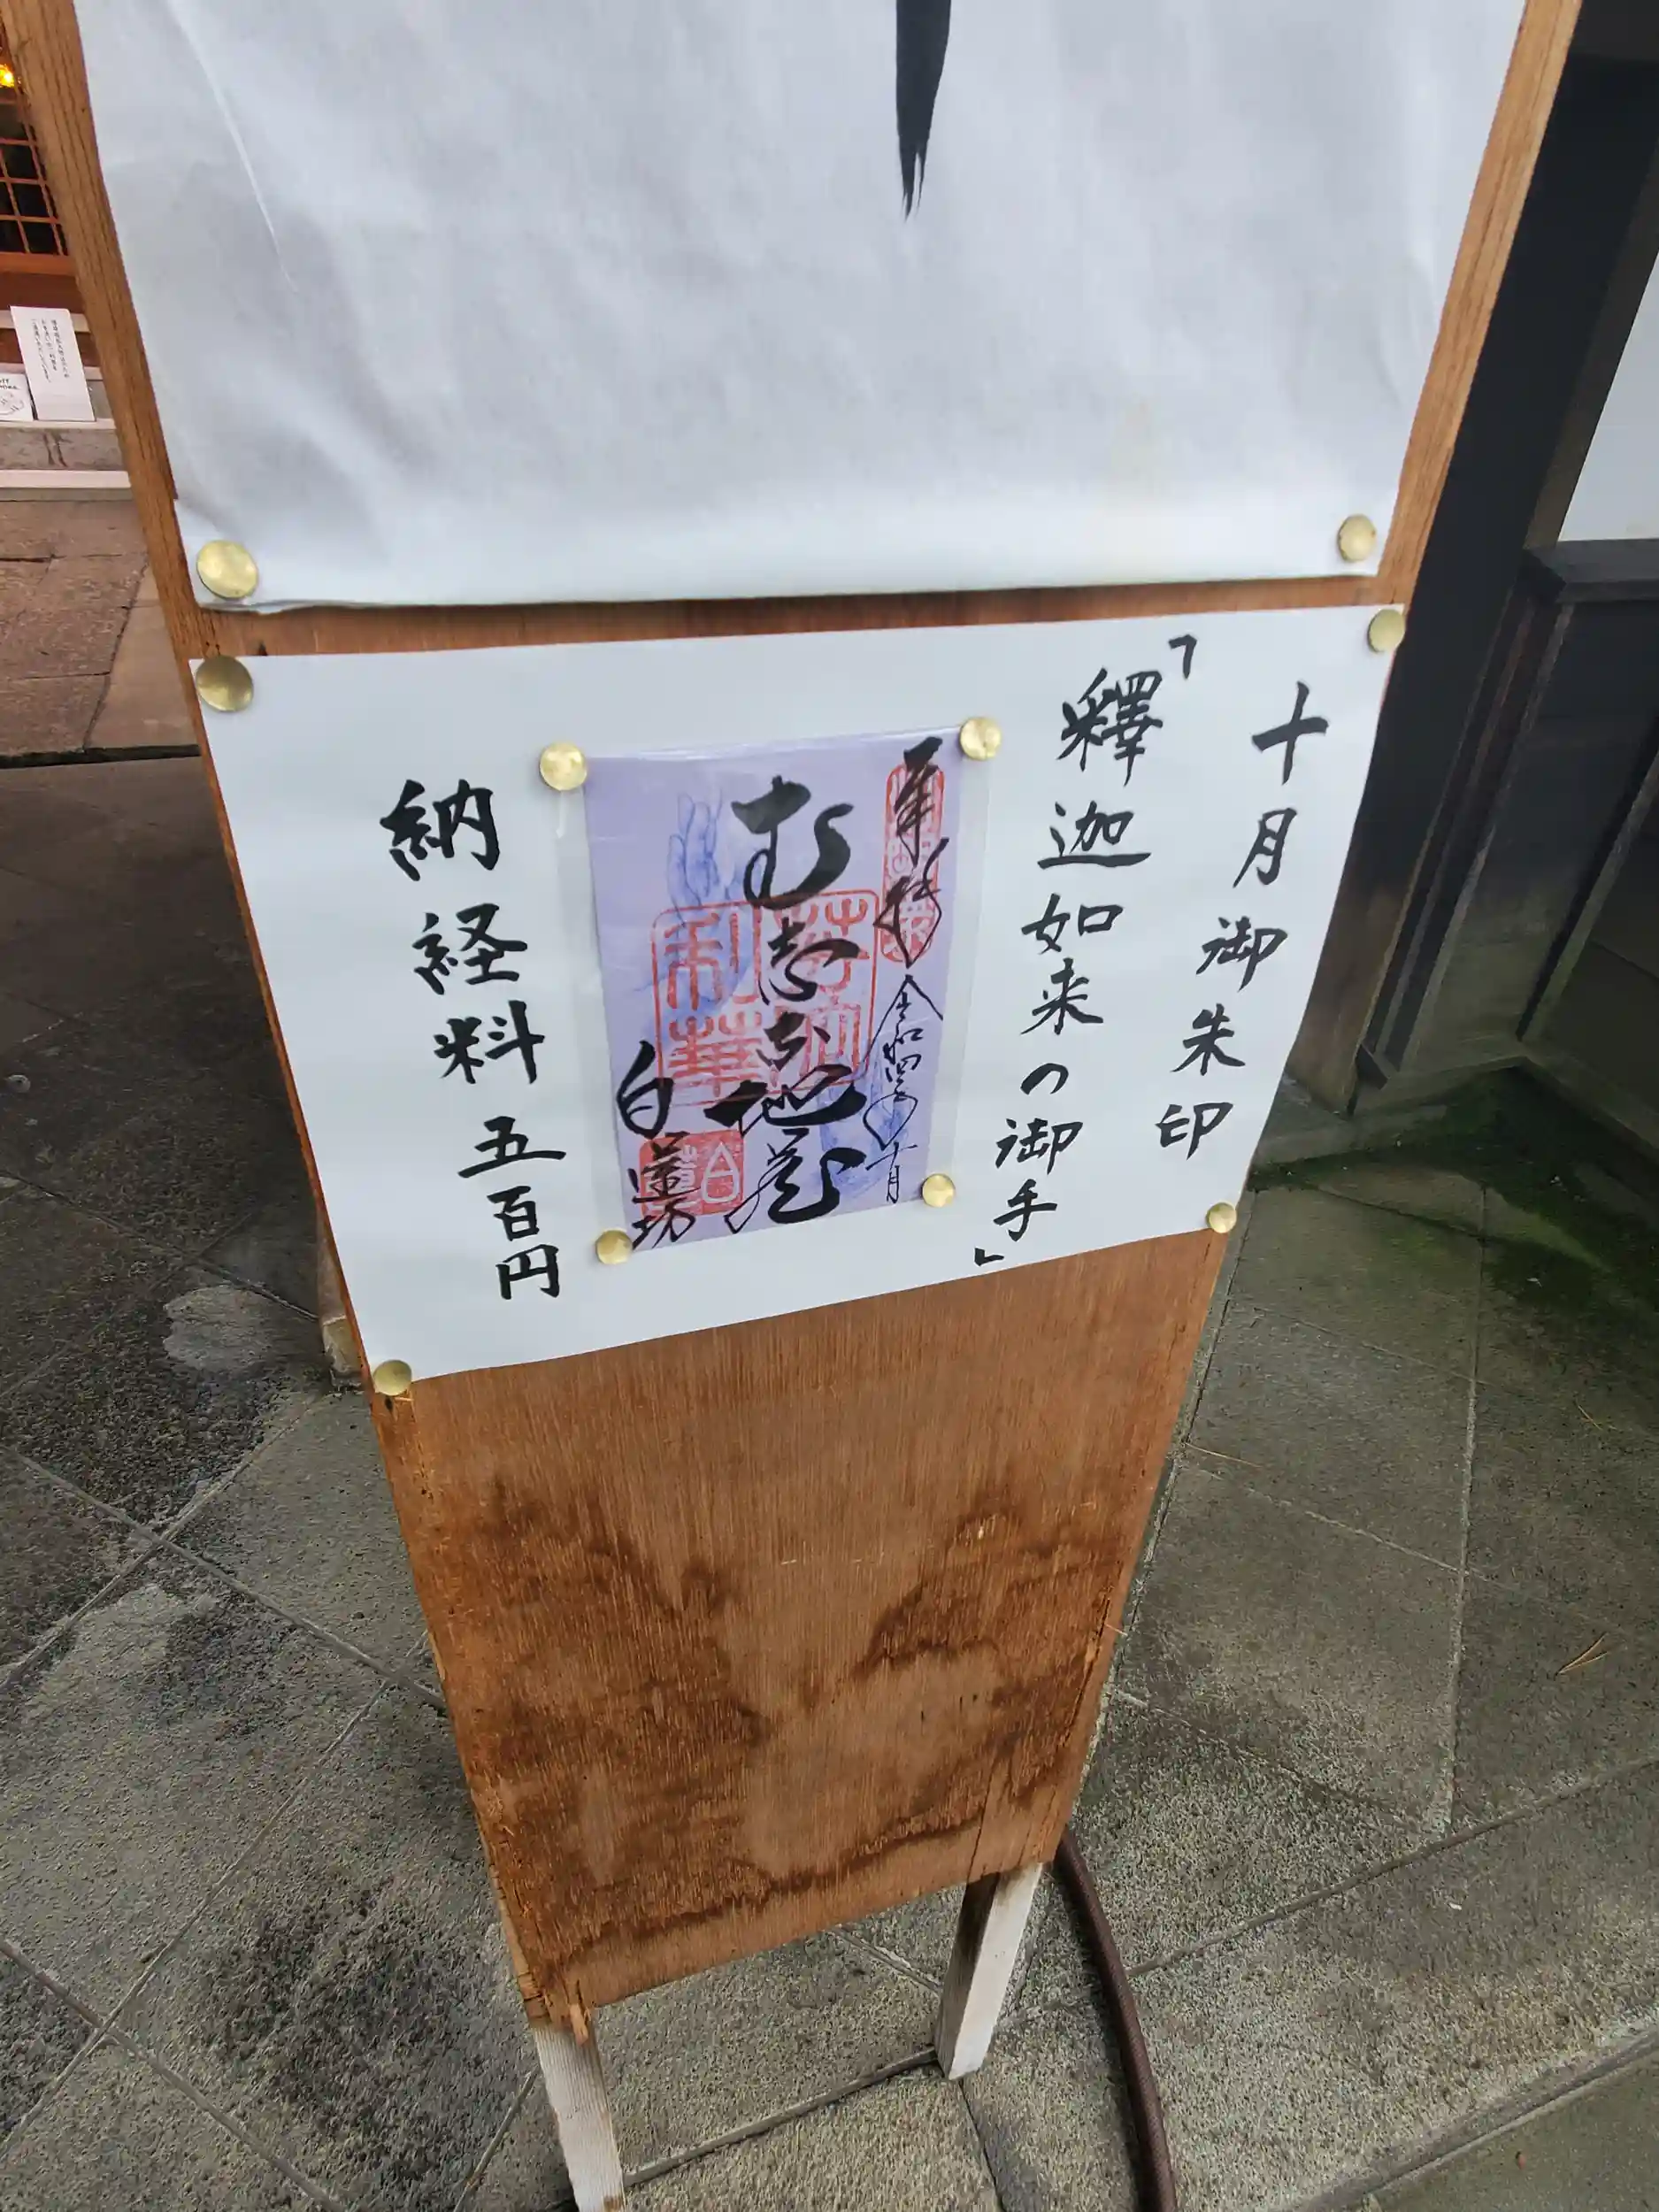 十月御朱印
「釋迦如来の御手」
奉拝 令和四年十月
むし歯地蔵
白蓮坊
納経料 五百円